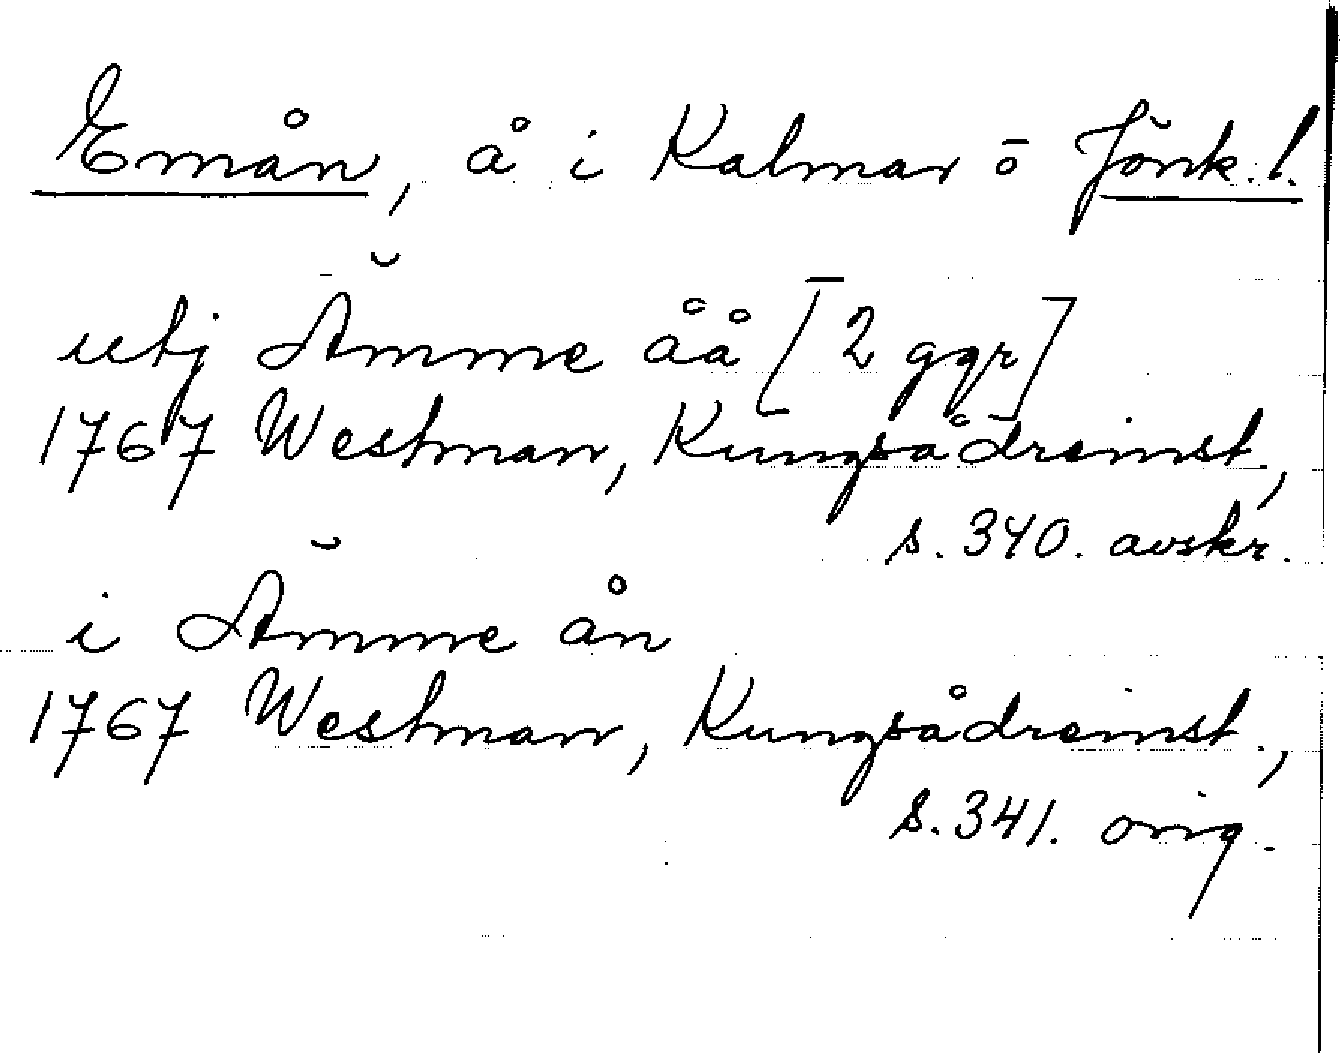 Emån, å i Kalmar ö Jönk. l.
utj Ämme åå [2 ggr]
1767 Westman, Kungsådreinst.,
s. 340. avskr.
i Ämme ån
1767 Westman, Kungsådreinst.,
s. 341. orig.